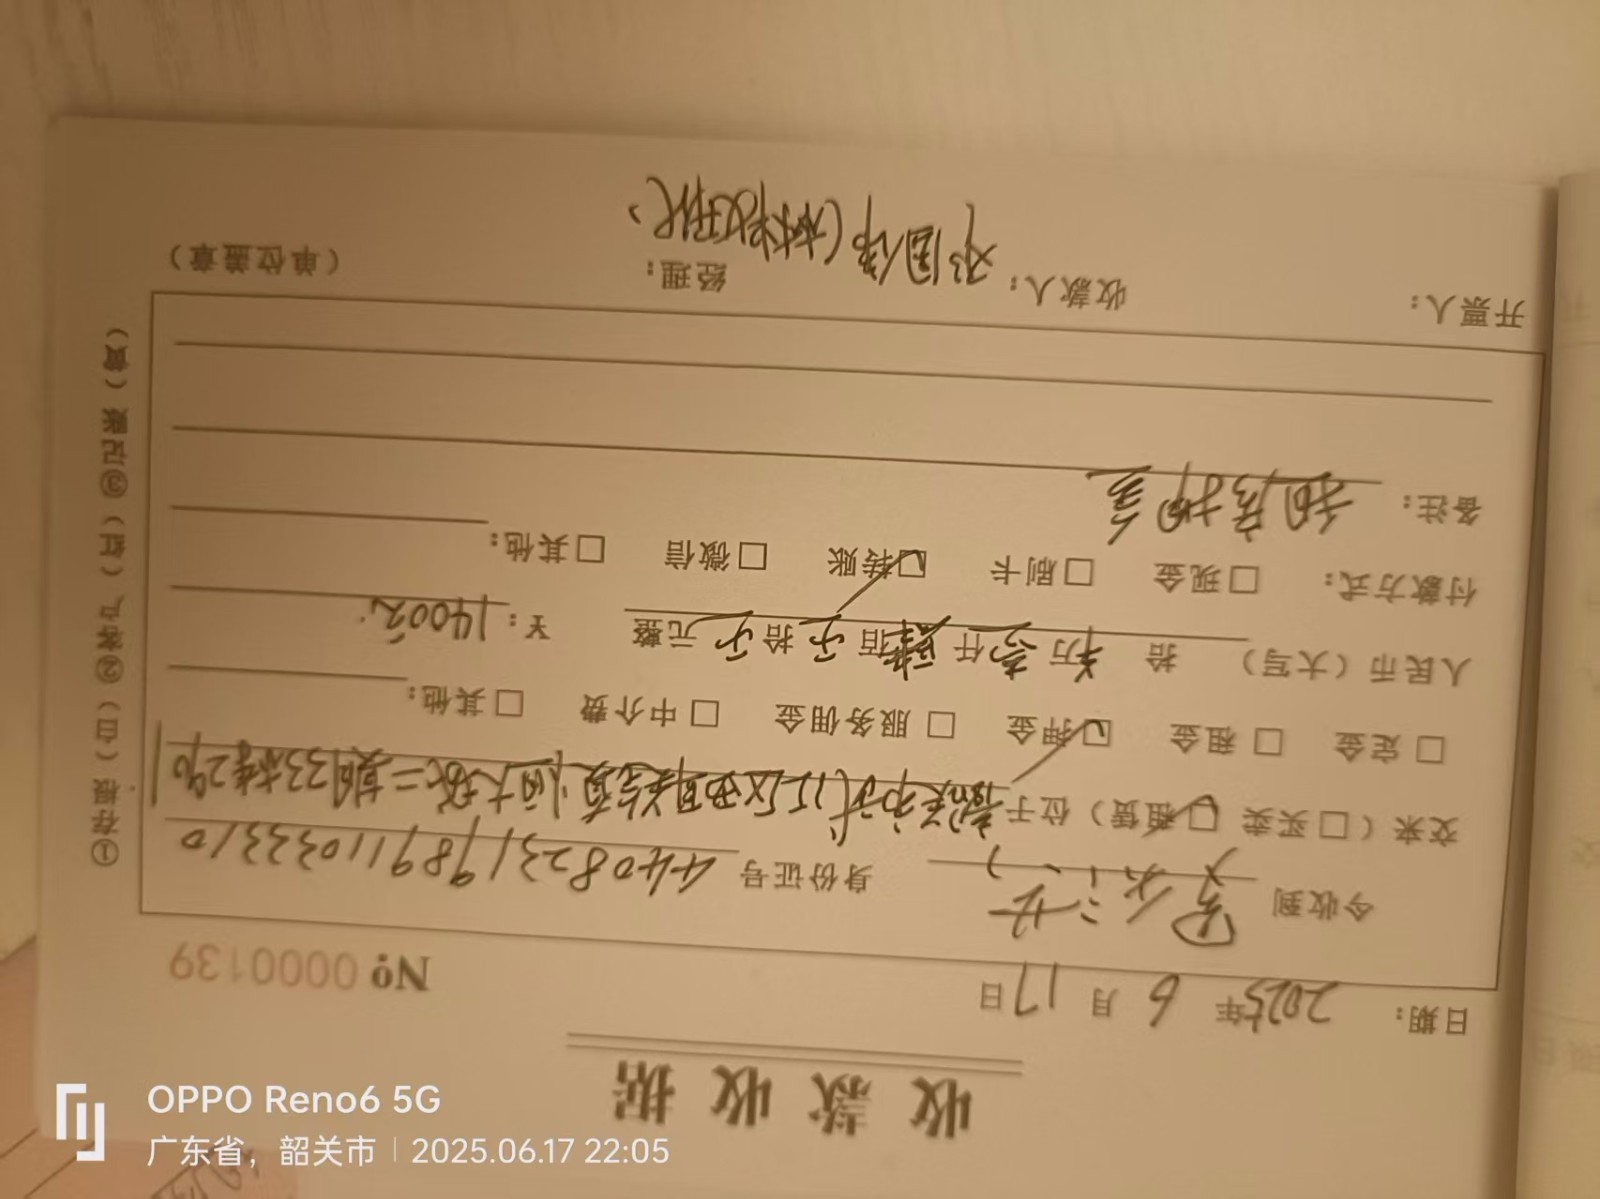 收款收据
日期：2025年6月17日
No 0000139
今收到 身份证号 440823198911033310
交来（□买卖 ☑租赁）位于韶关市武江区西联芙蓉恒大城二期33栋2901
□定金 □租金 ☑押金 □服务佣金 □中介费 □其他：
人民币（大写） 拾 万 壹仟 肆佰 零拾 零元整 ￥：1400元
付款方式： □现金 □刷卡 ☑转账 □微信 □其他：
备注： 租房押金
开票人： 收款人： 邓国锋（林 代） 经理： （单位盖章）
①存根（白）②客户（红）③记账（黄）
OPPO Reno6 5G
广东省，韶关市 | 2025.06.17 22:05